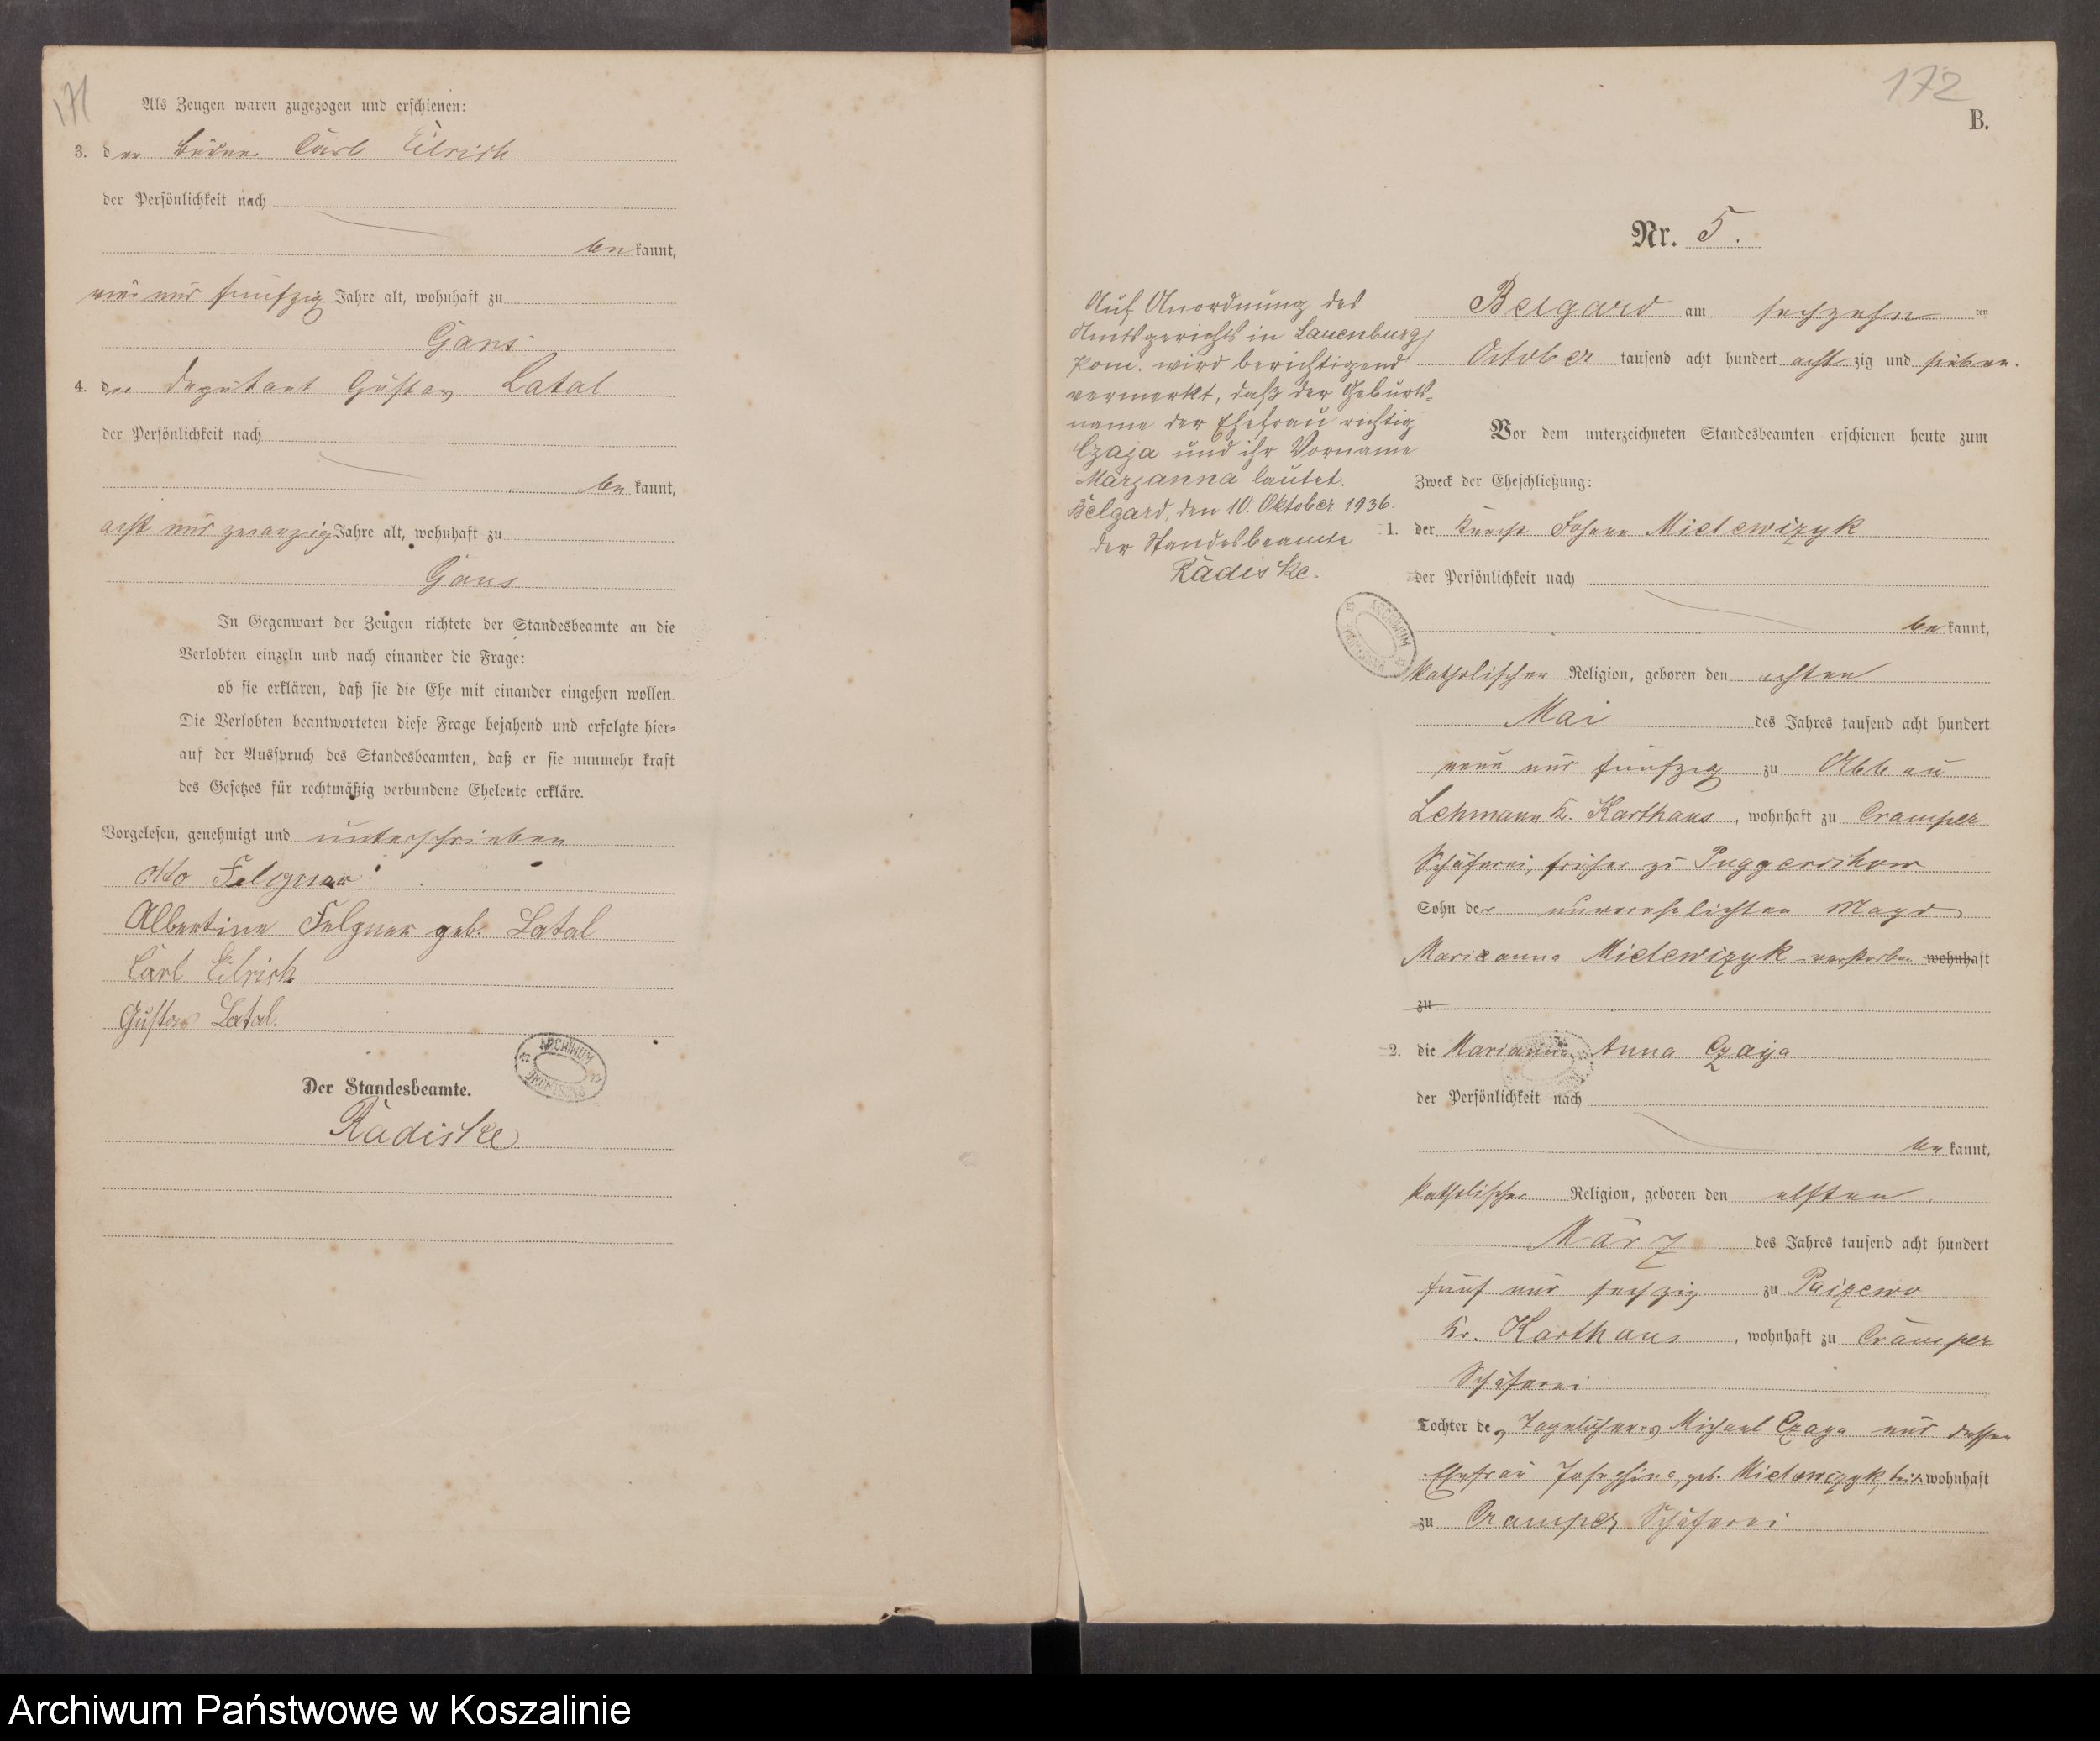 171
Als Zeugen waren zugezogen und erschienen:
3. der Carl Eilrich
der Persönlichkeit nach
be kannt,
und fünfzig Jahre alt, wohnhaft zu
Gans
4. der Deputant Gustav Latal
der Persönlichkeit nach
be kannt,
acht und zwanzig Jahre alt, wohnhaft zu
Gans
In Gegenwart der Zeugen richtete der Standesbeamte an die
Verlobten einzeln und nach einander die Frage:
ob sie erklären, daß sie die Ehe mit einander eingehen wollen.
Die Verlobten beantworteten diese Frage bejahend und erfolgte hier=
auf der Ausspruch des Standesbeamten, daß er sie nunmehr kraft
des Gesetzes für rechtmäßig verbundene Eheleute erkläre.
Vorgelesen, genehmigt und unterschrieben
Otto Felgner
Albertine Felgner geb. Latal
Carl Eilrich
Gustav Latal.
ARCHIWUM
Der Standesbeamte.
Radiske
172
B.
Nr. 5.
Auf Anordnung des
Amtsgerichts in Lauenburg
Pom. wird berichtigend
vermerkt, daß der Geburts=
name der Ehefrau richtig
Czaja und ihr Vorname
Marzanna lautet.
Belgard, den 10. Oktober 1936.
Der Standesbeamte
Radiske.
ARCHIWUM
Belgard am sechzehn ten
October tausend acht hundert acht zig und sieben.
Vor dem unterzeichneten Standesbeamten erschienen heute zum
Zweck der Eheschließung:
1. der Knecht Johann Mielewizyk
der Persönlichkeit nach
be kannt,
katholischer Religion, geboren den achten
Mai des Jahres tausend acht hundert
neun und fünfzig zu Abbau
Lehmann Kr. Karthaus, wohnhaft zu Cramper
Schäferei, früher zu
Sohn der unverehelichten Magd
Marianna Mielewizyk verstorben wohnhaft
zu
2. die Marianna Anna Czaija
der Persönlichkeit nach
be kannt,
katholischer Religion, geboren den elften
März des Jahres tausend acht hundert
fünf und sechzig zu Paizewo
Kr. Karthaus, wohnhaft zu Cramper
Schäferei
Tochter des Tagelöhners Michael Czaya und dessen
Ehefrau Josephine, geb. wohnhaft
zu Cramper Schäferei
Archiwum Państwowe w Koszalinie